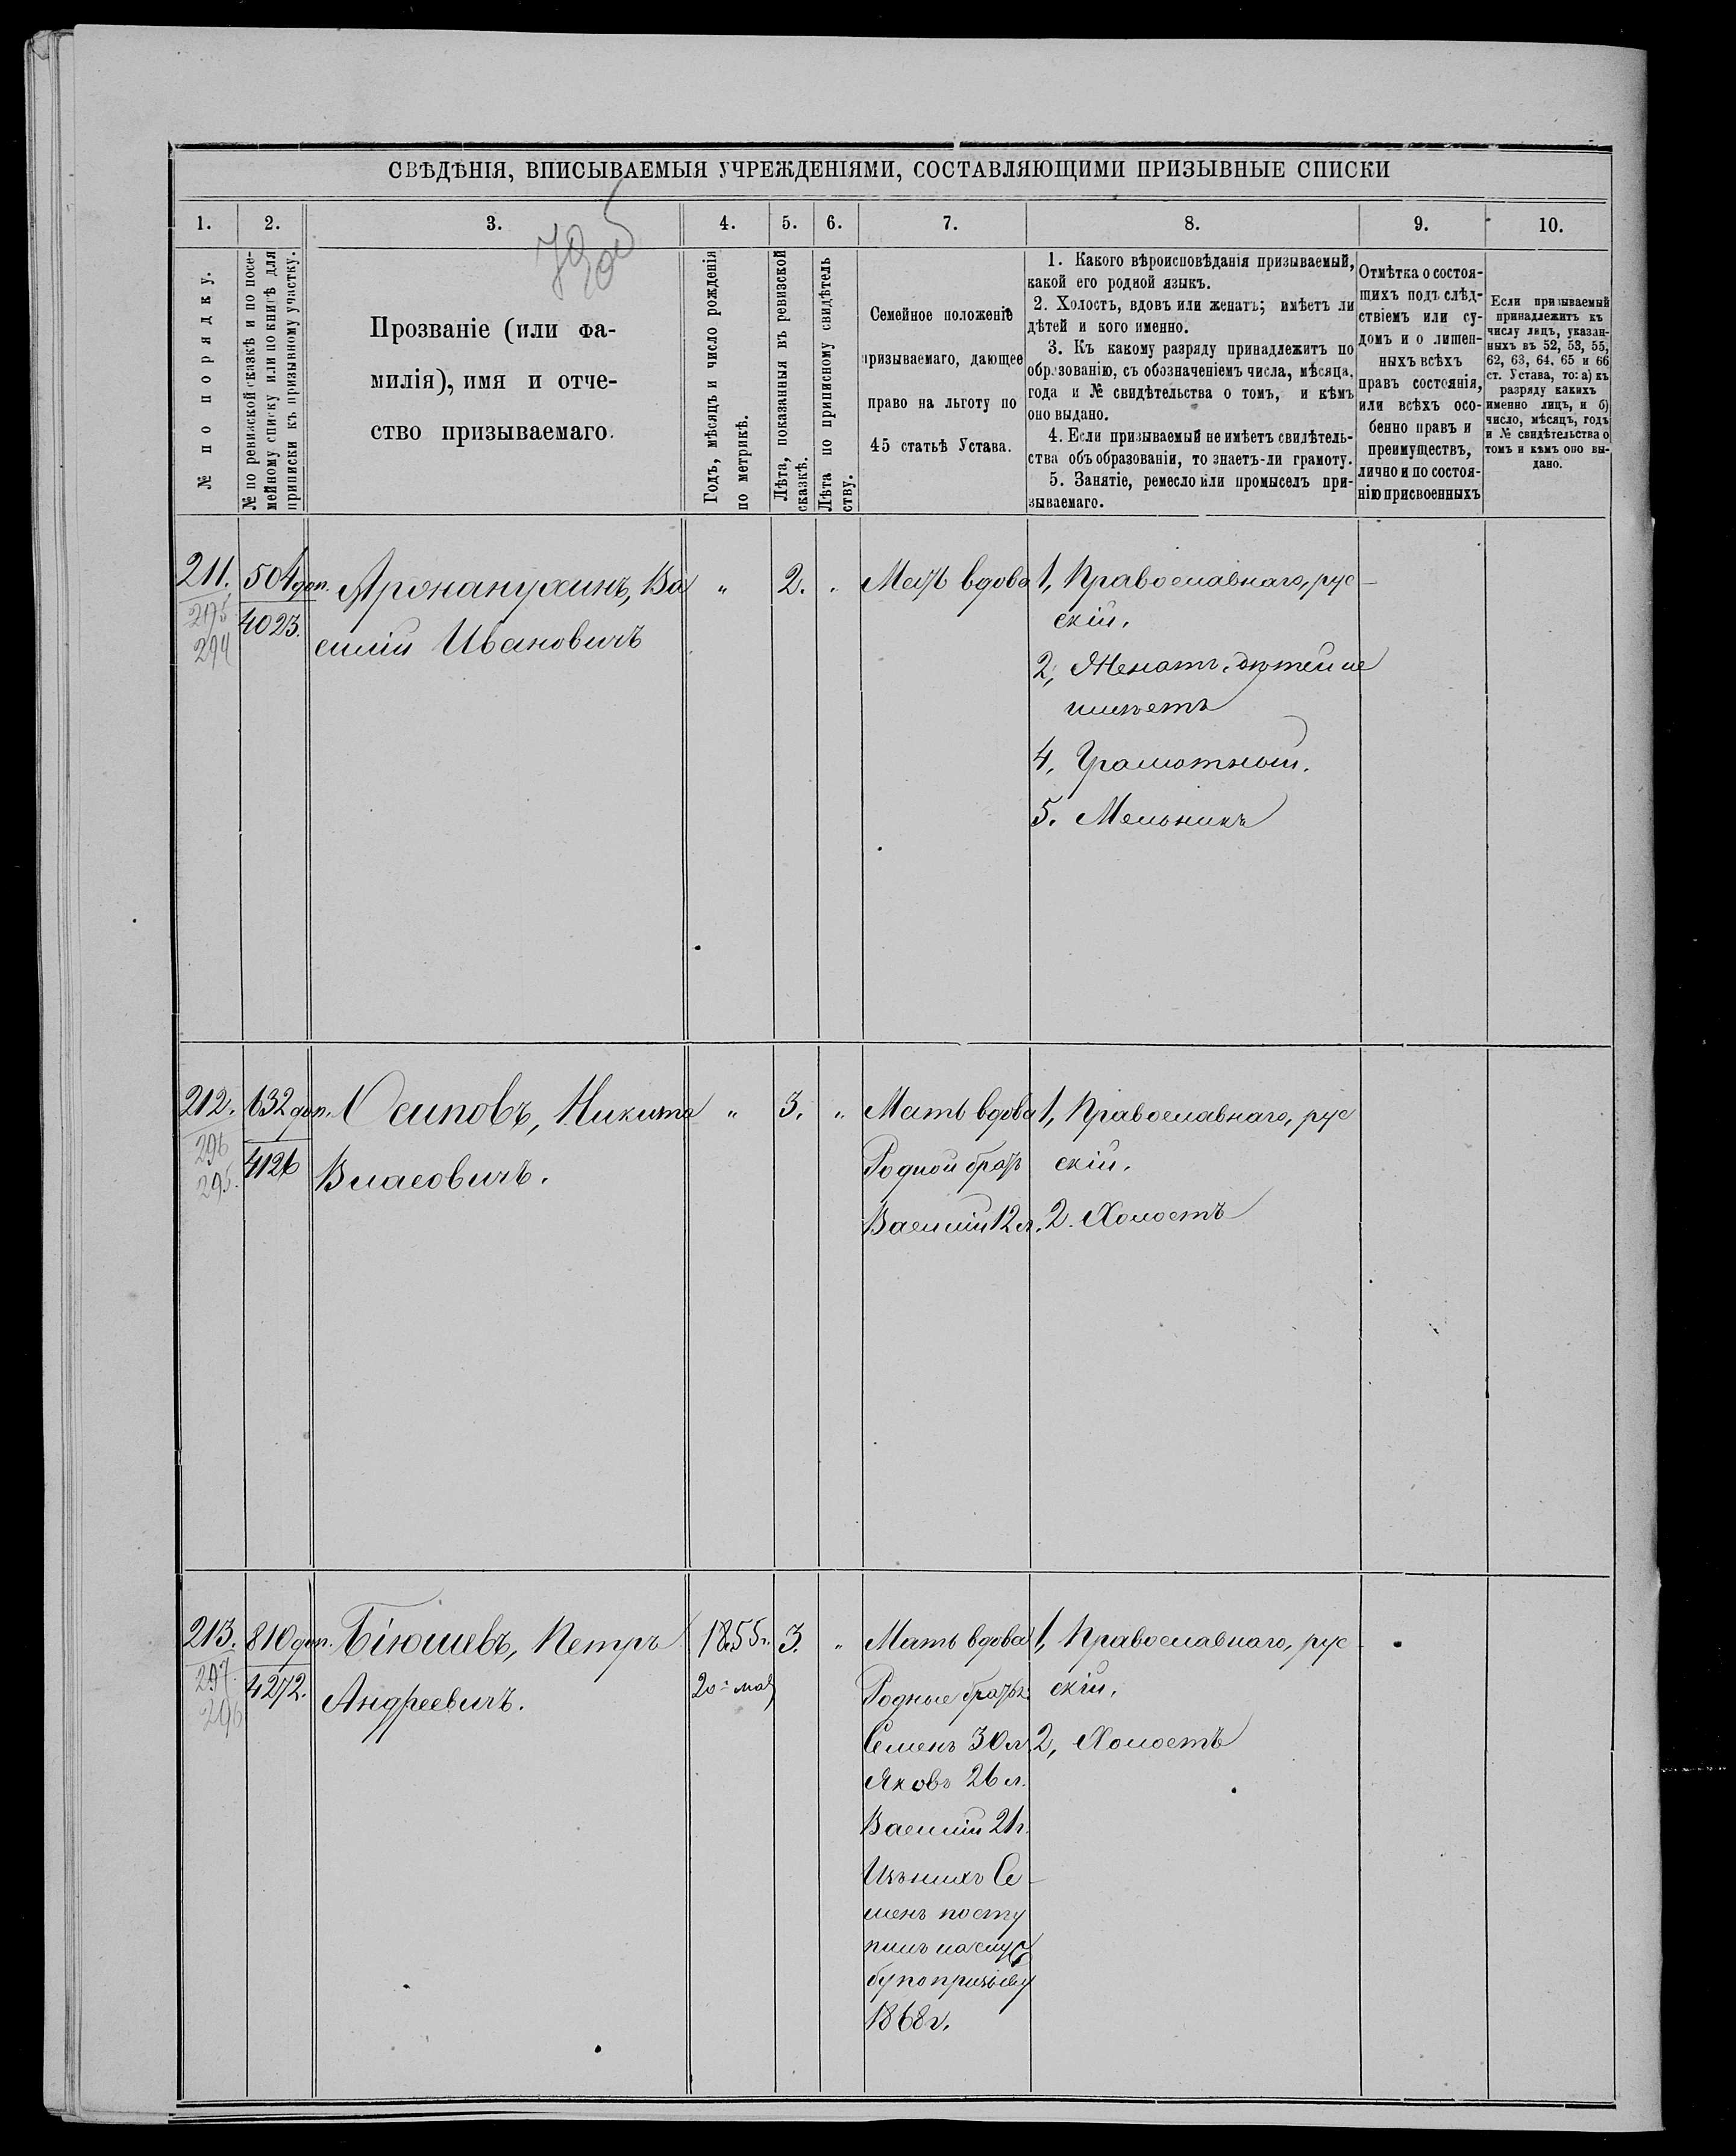 СВѢДѢНІЯ, ВПИСЫВАЕМЫЯ УЧРЕЖДЕНІЯМИ, СОСТАВЛЯЮЩИМИ ПРИЗЫВНЫЕ СПИСКИ
1.
2.
3.
4.
5.
6.
7.
8.
9.
10.
№ по порядку.
№ по ревизской сказкѣ и по посе-
мейному списку или по книгѣ для
приписки къ призывному участку.
Прозваніе (или фа-
милія), имя и отче-
ство призываемаго.
Годъ, мѣсяцъ и число рожденія
по метрикѣ.
Лѣта, показанныя въ ревизской
сказкѣ.
Лѣта по приписному свидѣтель
ству.
Семейное положеніе
призываемаго, дающее
право на льготу по
45 статьѣ Устава.
1. Какого вѣроисповѣданія призываемый,
какой его родной языкъ.
2. Холостъ, вдовъ или женатъ; имѣетъ ли
дѣтей и кого именно.
3. Къ какому разряду принадлежитъ по
образованію, съ обозначеніемъ числа, мѣсяца,
года и № свидѣтельства о томъ, и кѣмъ
оно выдано.
4. Если призываемый не имѣетъ свидѣтель-
ства объ образованіи, то знаетъ-ли грамоту.
5. Занятіе, ремесло или промыселъ при-
зываемаго.
Отмѣтка о состоя-
щихъ подъ слѣд-
ствіемъ или су-
домъ и о лишен-
ныхъ всѣхъ
правъ состоянія,
или всѣхъ осо-
бенно правъ и
преимуществъ,
лично и по состоя-
нію присвоенныхъ
Если призываемый
принадлежитъ къ
числу лицъ, указан-
ныхъ въ 52, 53, 55,
62, 63, 64. 65 и 66
ст. Устава, то: а) къ
разряду какихъ
именно лицъ, и б)
число, мѣсяцъ, годъ
и № свидѣтельства о
томъ и кѣмъ оно вы-
дано.
211.
294
504 доп.
4023.
Ва
силій Ивановичъ
"
2.
"
Мать вдова
1, Православнаго, рус-
скій.
2, Женатъ, дѣтей не
имѣетъ
4, Грамотный.
5. Мельникъ
212.
296
295.
632 доп.
4126
Осиповъ, Никита
Власовичъ.
"
3.
"
Мать вдова
Родной братъ
Василій 12 л.
1, Православнаго, рус
скій.
2. Холостъ
213.
297.
296
810 доп.
4272.
Бікшевъ, Петръ
Андреевичъ.
1855 г.
20 мая
3.
"
Мать вдова
Родные братья:
Семенъ 30 л.
Яковъ 26 л.
Василій 21 г.
Изъ нихъ Се-
менъ посту
пилъ на служ
бу по призыву
1868 г.
1, Православнаго, рус
скій.
2, Холостъ